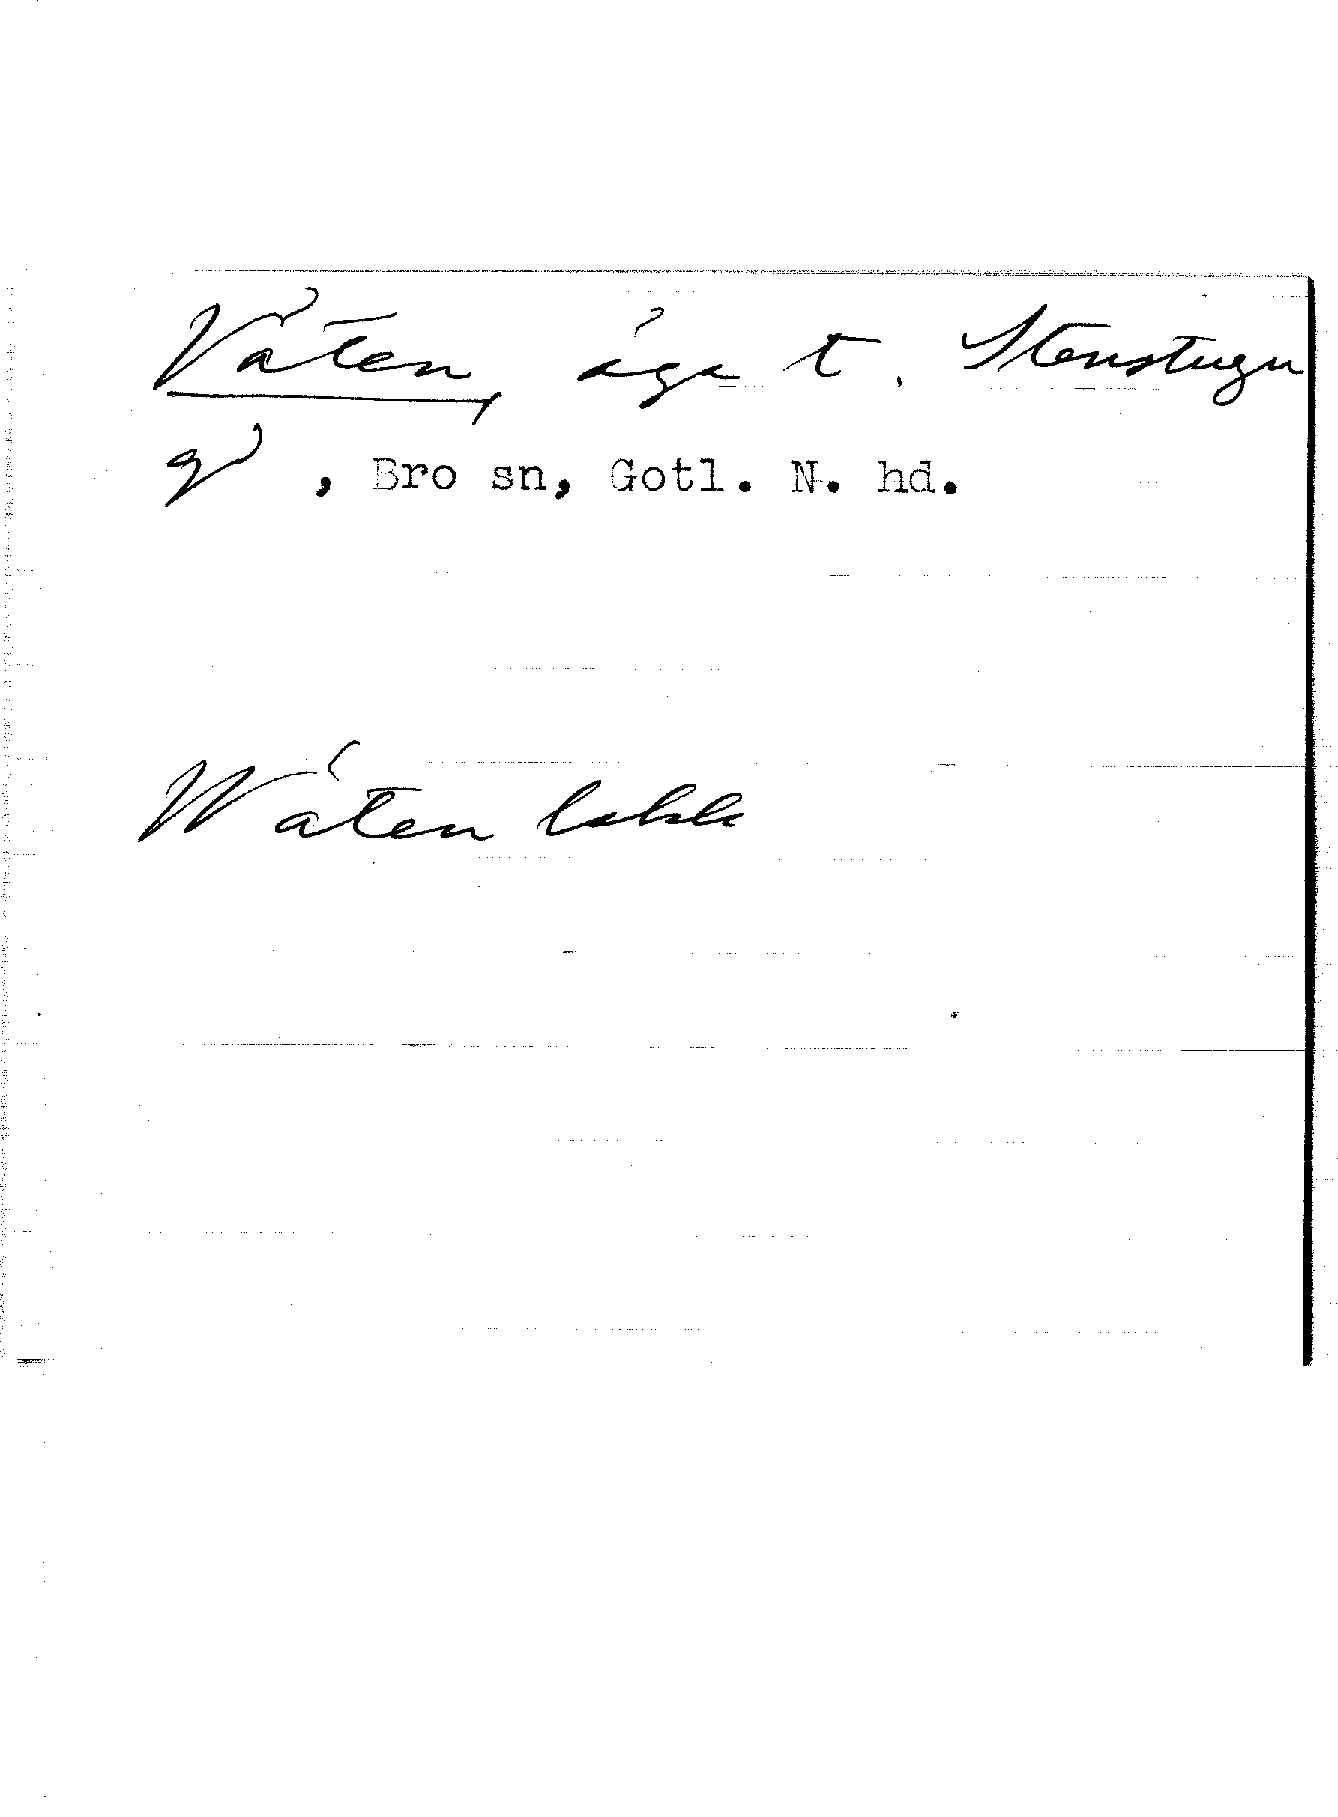 Våten, äga t. Stenstugu
g, Bro sn, Gotl. N. hd.
Wåten